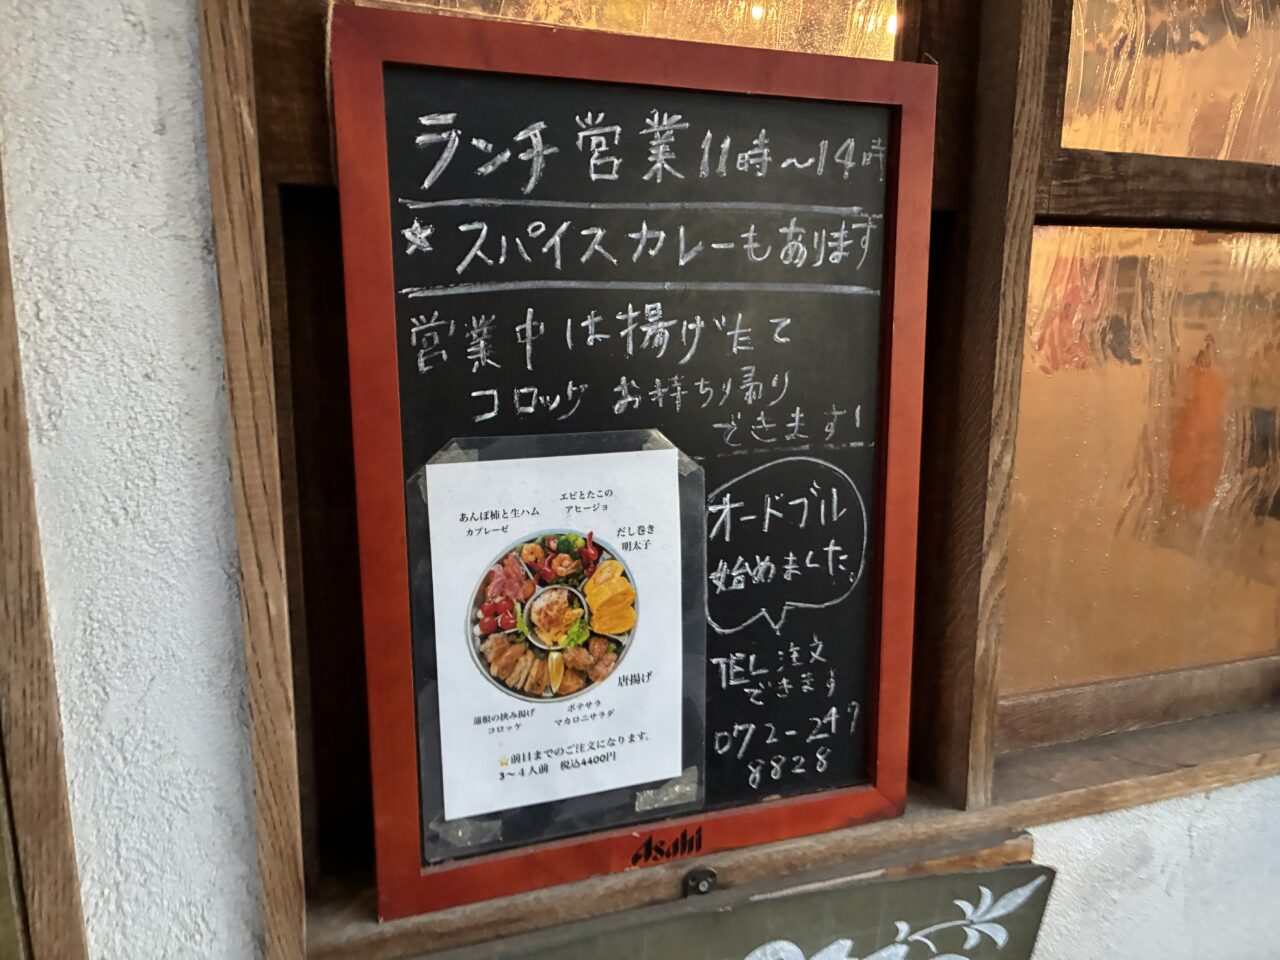 ランチ営業 11時～14時
★スパイスカレーもあります
営業中は揚げたて
コロッケ お持ち帰り
できます!
オードブル
始めました。
TEL注文
できます
072-247
8828
エビとたこの
アヒージョ
あんぽ柿と生ハム
カプレーゼ
だし巻き
明太子
唐揚げ
蓮根の挟み揚げ
コロッケ
ポテサラ
マカロニサラダ
⭐前日までのご注文になります。
3～4人前 税込4400円
Asahi